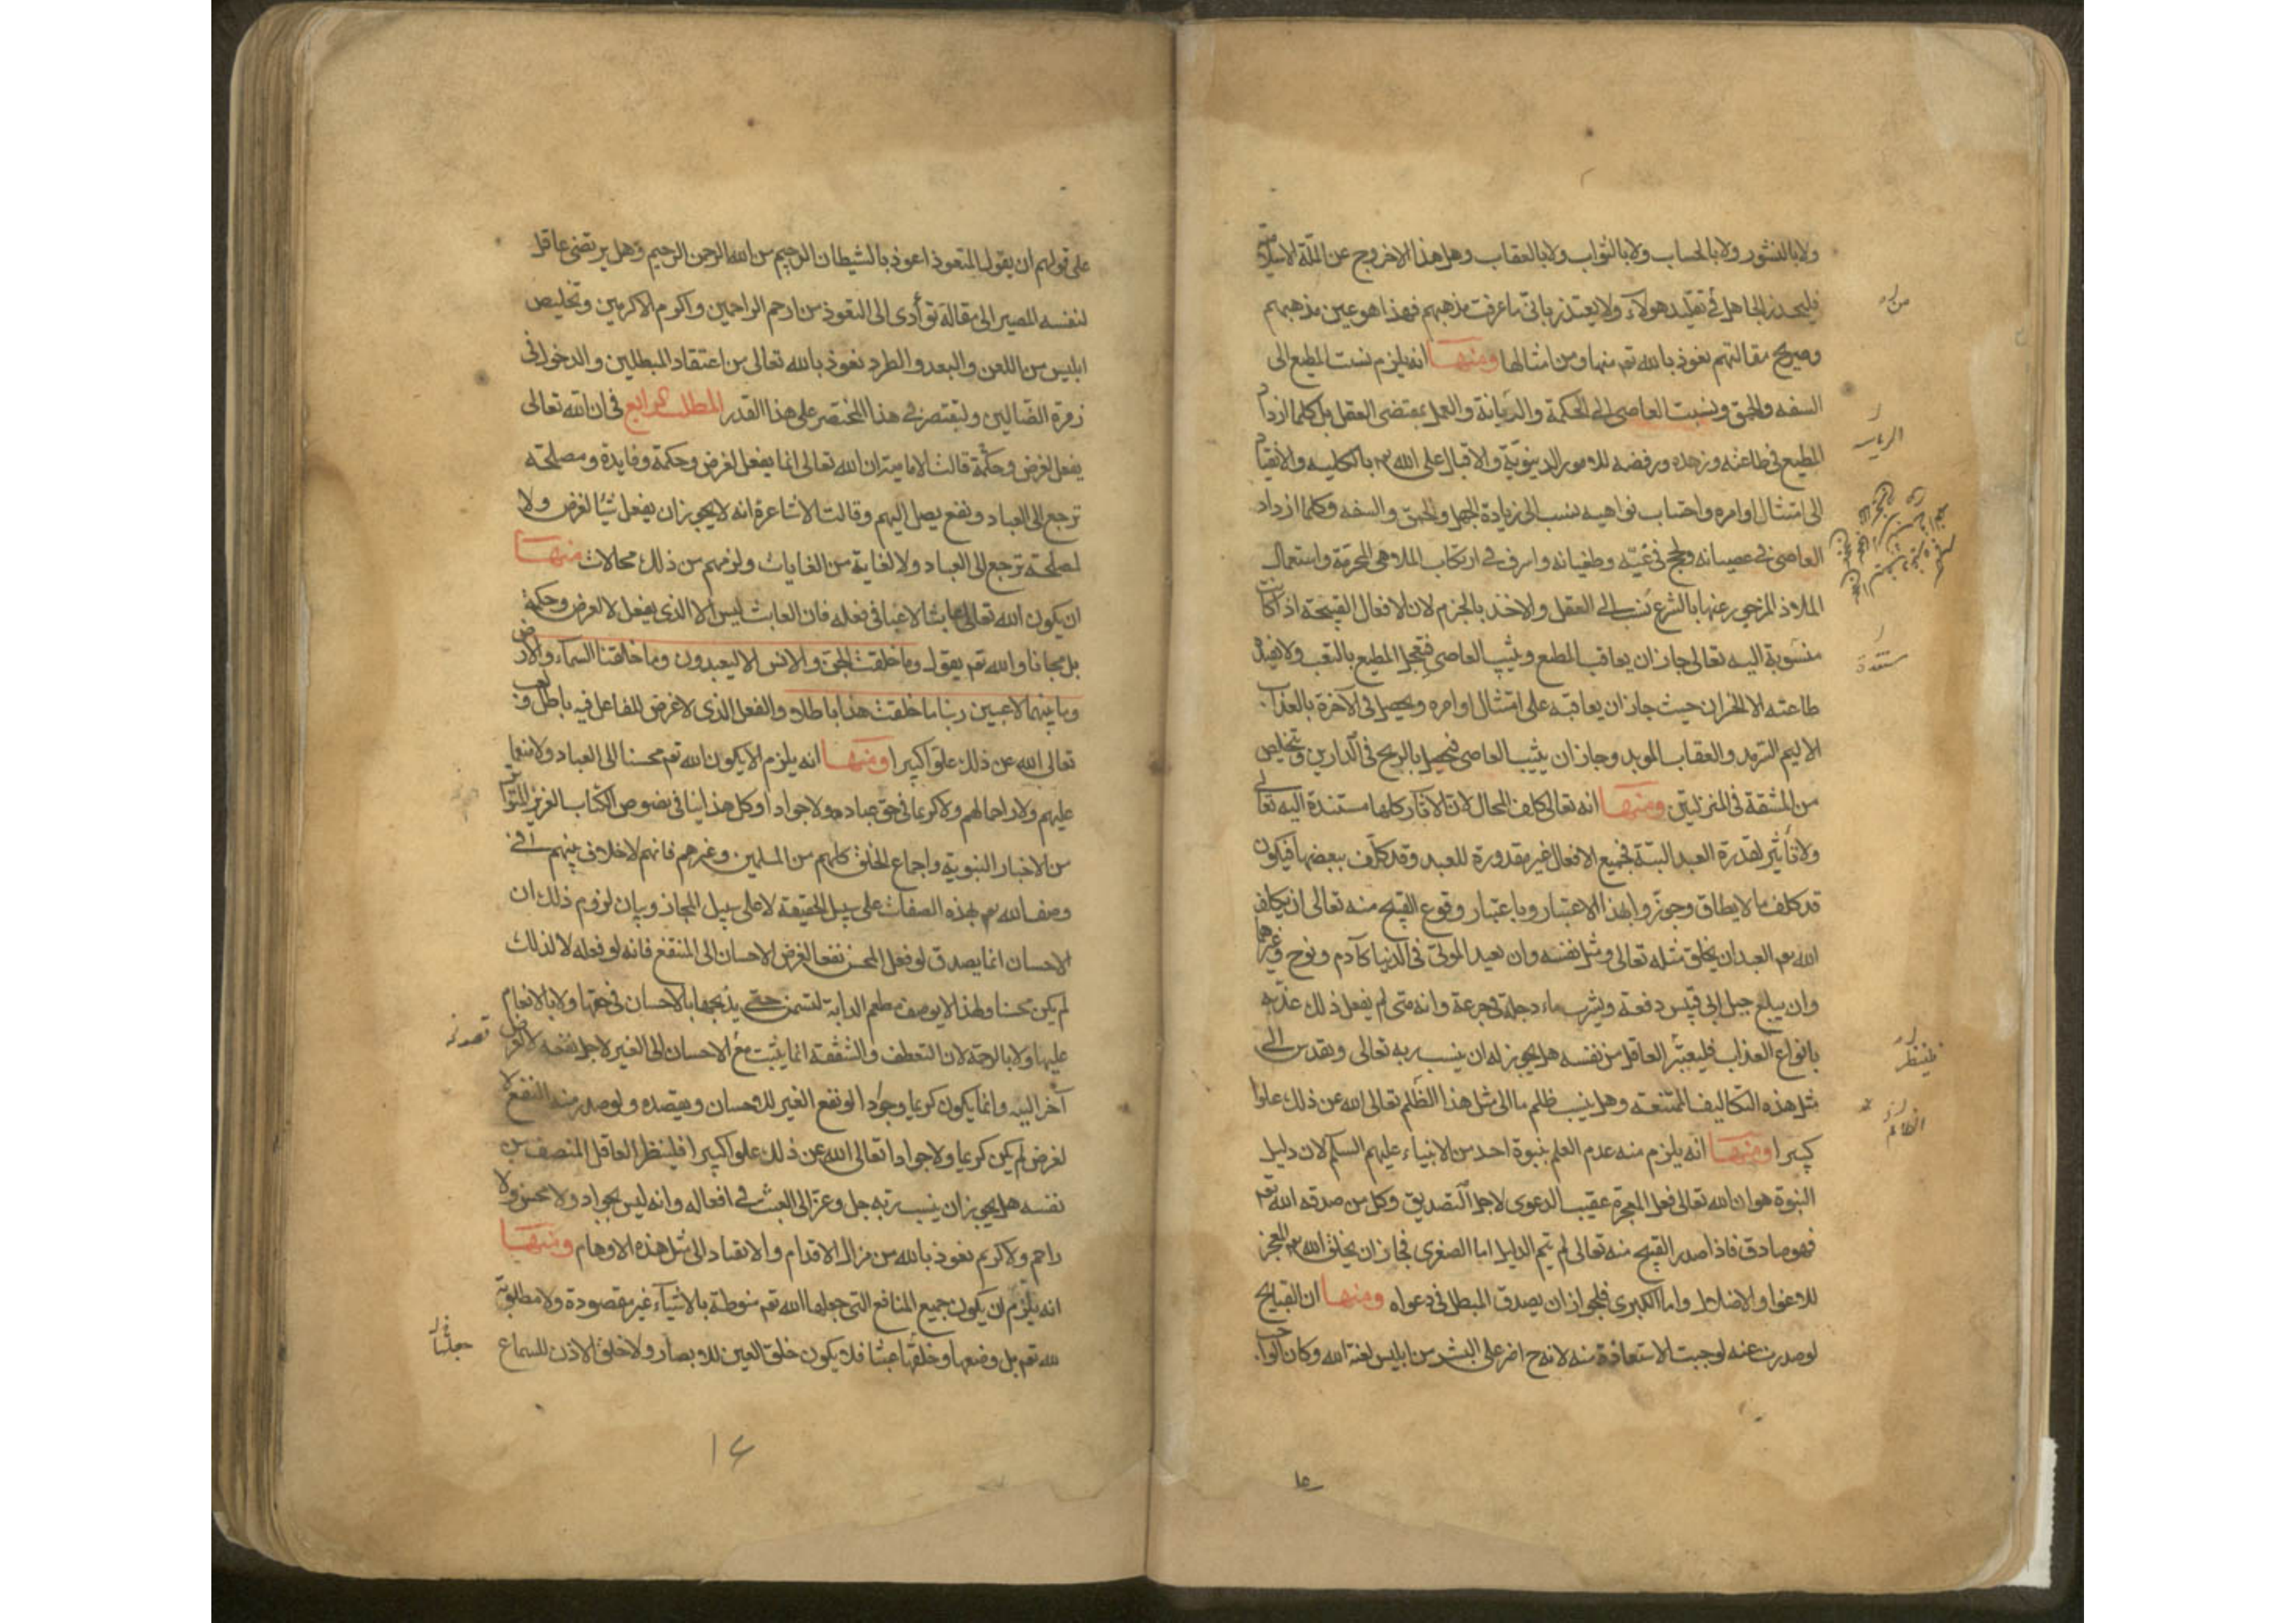 ولا بالنشور ولا بالحساب ولا بالثواب ولا بالعقاب وهل هذا الا خروج عن الملة الاسلامية
فليحذر الجاهل في تقليد هولاء ولا يعتذر باني ما عرفت مذهبهم فهذا هو عين مذهبهم
وصريح مقالتهم نعوذ بالله تعم منها ومن امثالها ومنها انه يلزم نسبت المطيع الى
السفه والحمق ونسبت العاصي الى الحكمة والديانة والعمل بمقتضى العقل بل كلما ازداد
المطيع في طاعته وزهده ورفضه للامور الدنيوية والاقبال على الله تم بالكلية والانقياد
الى امتثال اوامره واجتناب نواهيه ينسب الى زيادة الجهل والحمق والسفه وكلما ازداد
العاصي في عصيانه ولج في غيّه وطغيانه واسرف في ارتكاب الملاهي المحرمة واستعمال
الملاذ المزجور عنها بالشرع نسب الى العقل والاخذ بالجزم لان الافعال القبيحة اذا كانت
منسوبة اليه تعالى جاز ان يعاقب المطيع ويثيب العاصي فيتعجل المطيع بالتعب ولا تفيده
طاعته الا الخسران حيث جاز ان يعاقبه على امتثال اوامره ويحصل في الآخرة بالعذاب
الاليم السرمد والعقاب الموبد وجاز ان يثيب العاصي فيحصل بالربح في الدارين ويتخلص
من المشقة في المنزلتين ومنها انه تعالى كلف المحال لان الآثار كلها مستندة اليه تعالى
ولا تأثير لقدرة العبد البتة فجميع الافعال غير مقدورة للعبد وقد كلف ببعضها فيكون
قد كلف ما لا يطاق وجوزوا بهذا الاعتبار وباعتبار وقوع القبيح منه تعالى ان يكلف
الله تعم العبد ان يخلق مثله تعالى ومثل نفسه وان يعيد الموتى في الدنيا كآدم ونوح وغيرهما
وان يبلع جبل ابي قبيس دفعة ويشرب ماء دجلة في جرعة وانه متى لم يفعل ذلك عذبه
بانواع العذاب فليعتبر العاقل من نفسه هل يجوز له ان ينسب ربه تعالى وتقدس الى
مثل هذه التكاليف الممتنعة وهل ينسب ظلم ما الى مثل هذا الظلم تعالى الله عن ذلك علوا
كبيرا ومنها انه يلزم منه عدم العلم بنبوة احد من الانبياء عليهم السلم لان دليل
النبوة هو ان الله تعالى فعل المعجزة عقيب الدعوى لاجل التصديق وكل من صدقه الله تعم
فهو صادق فاذا صدر القبيح منه تعالى لم يتم الدليل اما الصغرى فجاز ان يخلق الله تعم المعجز
للاغواء والاضلال واما الكبرى فلجواز ان يصدق المبطل في دعواه ومنها ان القبايح
لو صدرت عنه لوجبت الاستعاذة منه لانه ح اضر على البشر من ابليس لعنه الله وكان الواجب
على قولهم ان يقول المتعوذ اعوذ بالشيطان الرجيم من الله الرحمن الرحيم وهل يرتضى عاقل
لنفسه المصير الى مقالة تؤدى الى التعوذ من ارحم الراحمين واكرم الاكرمين وتخليص
ابليس من اللعن والبعد والطرد نعوذ بالله تعالى من اعتقاد المبطلين والدخول في
زمرة الضالين ولنقتصر في هذا المختصر على هذا القدر المطلب الرابع في ان الله تعالى
يفعل لغرض وحكمة قالت الامامية ان الله تعالى انما يفعل لغرض وحكمة وفايدة ومصلحة
ترجع الى العباد ونفع يصل اليهم وقالت الاشاعرة انه لا يجوز ان يفعل شيئا لغرض ولا
لمصلحة ترجع الى العباد ولا لغاية من الغايات ولزمهم من ذلك محالات منها
ان يكون الله تعالى عابثا لاعبا في فعله فان العابث ليس الا الذى يفعل لا لغرض وحكمة
بل مجانا والله تعم يقول وما خلقت الجن والانس الا ليعبدون وما خلقنا السماء والارض
وما بينهما لاعبين ربنا ما خلقت هذا باطلا والفعل الذى لا غرض للفاعل فيه باطل ولعب
تعالى الله عن ذلك علوا كبيرا ومنها انه يلزم الا يكون الله تعم محسنا الى العباد ولا منعما
عليهم ولا راحما لهم ولا كريما في حق عباده ولا جوادا وكل هذا ينافى نصوص الكتاب العزيز المتواتر
من الاخبار النبوية واجماع الخلق كلهم من المسلمين وغيرهم فانهم لا خلاف بينهم في
وصف الله تعم بهذه الصفات على سبيل الحقيقة لا على سبيل المجاز وبيان لزوم ذلك ان
الاحسان انما يصدق لو فعل المحسن نفعا لغرض الاحسان الى المنتفع فانه لو فعله لا لذلك
لم يكن محسنا ولهذا لا يوصف مطعم الدابة لتسمن حتى يذبحها بالاحسان في حقها ولا بالانعام
عليها ولا بالرحمة لان التعطف والشفقة انما يثبت مع الاحسان الى الغير لاجل نفعه لا لغرض
آخر اليه وانما يكون كريما وجوادا لو نفع الغير للاحسان وبقصده ولو صدر منه النفع لا
لغرض لم يكن كريما ولا جوادا تعالى الله عن ذلك علوا كبيرا فلينظر العاقل المنصف من
نفسه هل يجوز ان ينسب ربه جل وعز الى العبث في افعاله وانه ليس بجواد ولا محسن ولا
راحم ولا كريم نعوذ بالله من مزال الاقدام والانقياد الى مثل هذه الاوهام ومنها
انه يلزم ان يكون جميع المنافع التى جعلها الله تعم منوطة بالاشياء غير مقصودة ولا مطلوبة
لله تعم بل وضعها وخلقها عبثا فلا يكون خلق العين للابصار ولا خلق الاذن للسماع